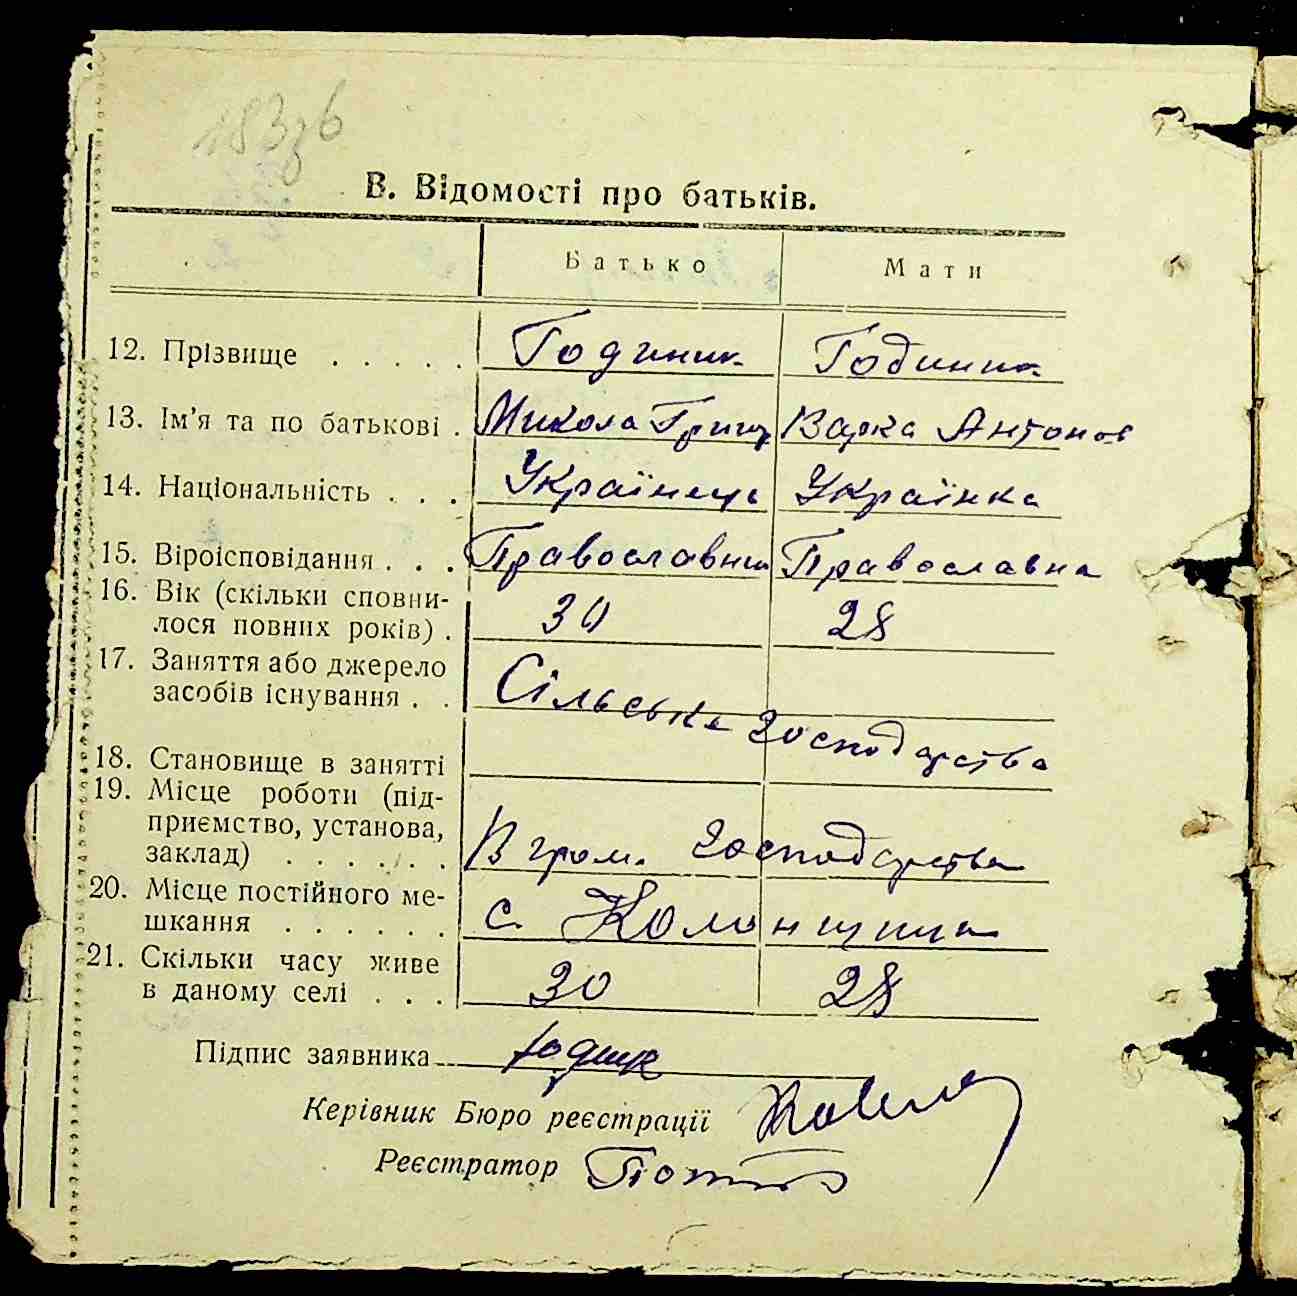 183зв
В. Відомості про батьків.
Батько Мати
12. Прізвище . . . . . Годиник Годиник
13. Ім'я та по батькові . Микола Григор Варка Антонов
14. Національність . . . Українець Українка
15. Віроісповідання . . . Православний Православна
16. Вік (скільки сповни-
лося повних років) . 30 28
17. Заняття або джерело
засобів існування . . Сільське господарство
18. Становище в занятті
19. Місце роботи (під-
приємство, установа,
заклад) . . . . . . В гром. господарстві
20. Місце постійного ме-
шкання . . . . . . с.
21. Скільки часу живе
в даному селі . . . 30 28
Підпис заявника
Керівник Бюро реєстрації
Реєстратор